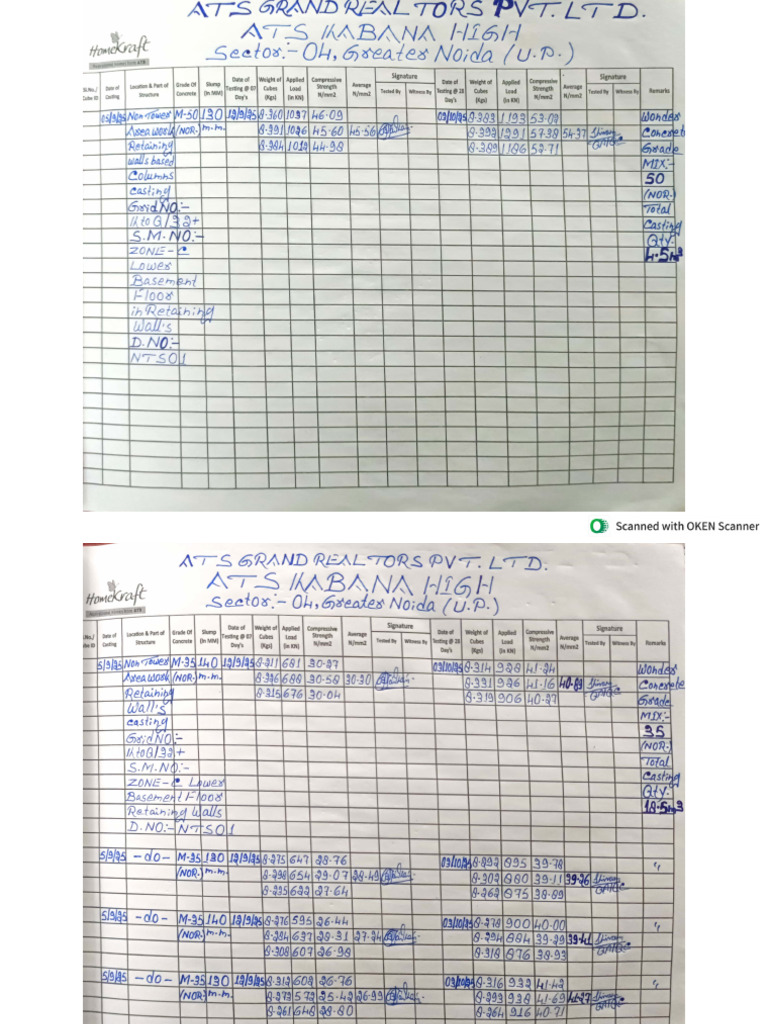 ATS GRAND REALTORS PVT. LTD.
ATS KABANA HIGH
HomeKraft
Sector:- 04, Greater Noida (U.P.)
Sl.No./ Cube ID Date of Casting Location & Part of Structure Grade Of Concrete Slump (In MM) Date of Testing @ 07 Day's Weight of Cubes (Kgs) Applied Load (in KN) Compressive Strength N/mm2 Average N/mm2 Signature Tested By Witness By Date of Testing @ 28 Day's Weight of Cubes (Kgs) Applied Load (in KN) Compressive Strength N/mm2 Average N/mm2 Signature Tested By Witness By Remarks
05/9/25 Non Tower M-50 130 12/9/25 8.360 1037 46.09 03/10/25 8.383 1193 53.02 Wonder
Area work (NOR.) m.m. 8.391 1026 45.60 45.56 8.392 1291 57.38 54.37 Concrete
Retaining 8.384 1012 44.98 8.389 1186 52.71 Grade
walls based MIX:-
Columns 50
casting (NOR.)
Grid NO:- Total
Casting
S.M. NO:- Qty:-
ZONE-C 4.5m3
Lower
Basement
Floor
in Retaining
Wall's
D.NO:-
NTS01
Scanned with OKEN Scanner
ATS GRAND REALTORS PVT. LTD.
ATS KABANA HIGH
HomeKraft
Sector:- 04, Greater Noida (U.P.)
Date of Casting Location & Part of Structure Grade Of Concrete Slump (In MM) Date of Testing @ 07 Day's Weight of Cubes (Kgs) Applied Load (in KN) Compressive Strength N/mm2 Average N/mm2 Signature Tested By Witness By Date of Testing @ 28 Day's Weight of Cubes (Kgs) Applied Load (in KN) Compressive Strength N/mm2 Average N/mm2 Signature Tested By Witness By Remarks
5/9/25 Non Tower M-35 140 12/9/25 8.211 681 30.27 03/10/25 8.314 928 41.24 Wonder
Area work (NOR.) m.m. 8.326 688 30.58 30.30 8.331 926 41.16 40.89 Concrete
Retaining 8.315 676 30.04 8.319 906 40.27 Grade
Wall's MIX:-
casting 35
Grid NO:- (NOR.)
Total
S.M. NO:- Casting
ZONE-C Lower Qty:-
Basement Floor 18.5m3
Retaining Walls
D.NO:- NTS01
5/9/25 -do- M-35 130 12/9/25 8.275 647 28.76 03/10/25 8.292 895 39.78 "
(NOR.) m.m. 8.298 654 29.07 28.49 8.302 880 39.11 39.26
8.295 622 27.64 8.262 875 38.89
5/9/25 -do- M-35 140 12/9/25 8.276 595 26.44 03/10/25 8.278 900 40.00 "
(NOR.) m.m. 8.284 637 28.31 27.24 8.294 884 39.29 39.41
8.308 607 26.98 8.318 876 38.93
5/9/25 -do- M-35 130 12/9/25 8.312 602 26.76 03/10/25 8.316 932 41.42 "
(NOR.) m.m. 8.273 572 25.42 26.99 8.293 938 41.69 41.27
8.261 648 28.80 8.264 916 40.71